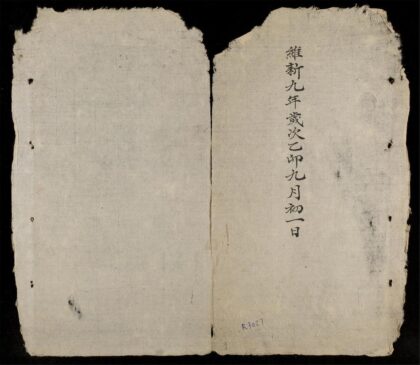 維新九年歲次乙卯九月初一日
R.3057